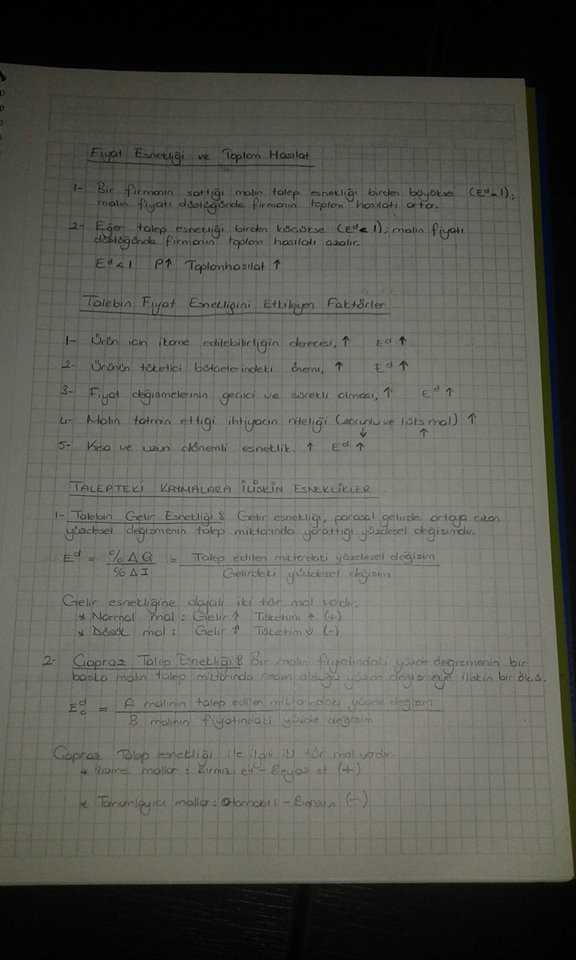 Fiyat Esnekliği ve Toplam Hasılat
1- Bir firmanın sattığı malın talep esnekliği birden büyükse (Ed>1);
malın fiyatı düştüğünde firmanın toplam hasılatı artar.
2- Eğer talep esnekliği birden küçükse (Ed<1); malın fiyatı
düştüğünde firmanın toplam hasılatı azalır.
Ed<1 P↑ Toplam hasılat ↑
Talebin Fiyat Esnekliğini Etkileyen Faktörler
1- Ürün için ikame edilebilirliğin derecesi, ↑ Ed ↑
2- Ürünün tüketici bütçelerindeki önemi, ↑ Ed ↑
3- Fiyat değişmelerinin geçici ve sürekli olması, ↑ Ed ↑
4- Malın tatmin ettiği ihtiyacın niteliği (zorunlu ve lüks mal) ↑
↓ ↑
5- Kısa ve uzun dönemli esneklik. ↑ Ed ↑
TALEPTEKİ KAYMALARA İLİŞKİN ESNEKLİKLER
1- Talebin Gelir Esnekliği : Gelir esnekliği, parasal gelirde ortaya çıkan
yüzdesel değişmenin talep miktarında yarattığı yüzdesel değişimdir.
Ed = %ΔQ / %ΔI = Talep edilen miktardaki yüzdesel değişim / Gelirdeki yüzdesel değişim
Gelir esnekliğine dayalı iki tür mal vardır.
* Normal mal : Gelir ↑ Tüketim ↑ (+)
* Düşük mal : Gelir ↑ Tüketim ↓ (-)
2- Çapraz Talep Esnekliği : Bir malın fiyatındaki yüzde değişmenin bir
başka malın talep miktarında neden olduğu yüzde değişmeye ilişkin bir ölçü.
Edc = A malının talep edilen miktarındaki yüzde değişim / B malının fiyatındaki yüzde değişim
Çapraz Talep esnekliği ile ilgili iki tür mal vardır.
* İkame mallar : Kırmızı et - Beyaz et (+)
* Tamamlayıcı mallar : Otomobil - Benzin (-)